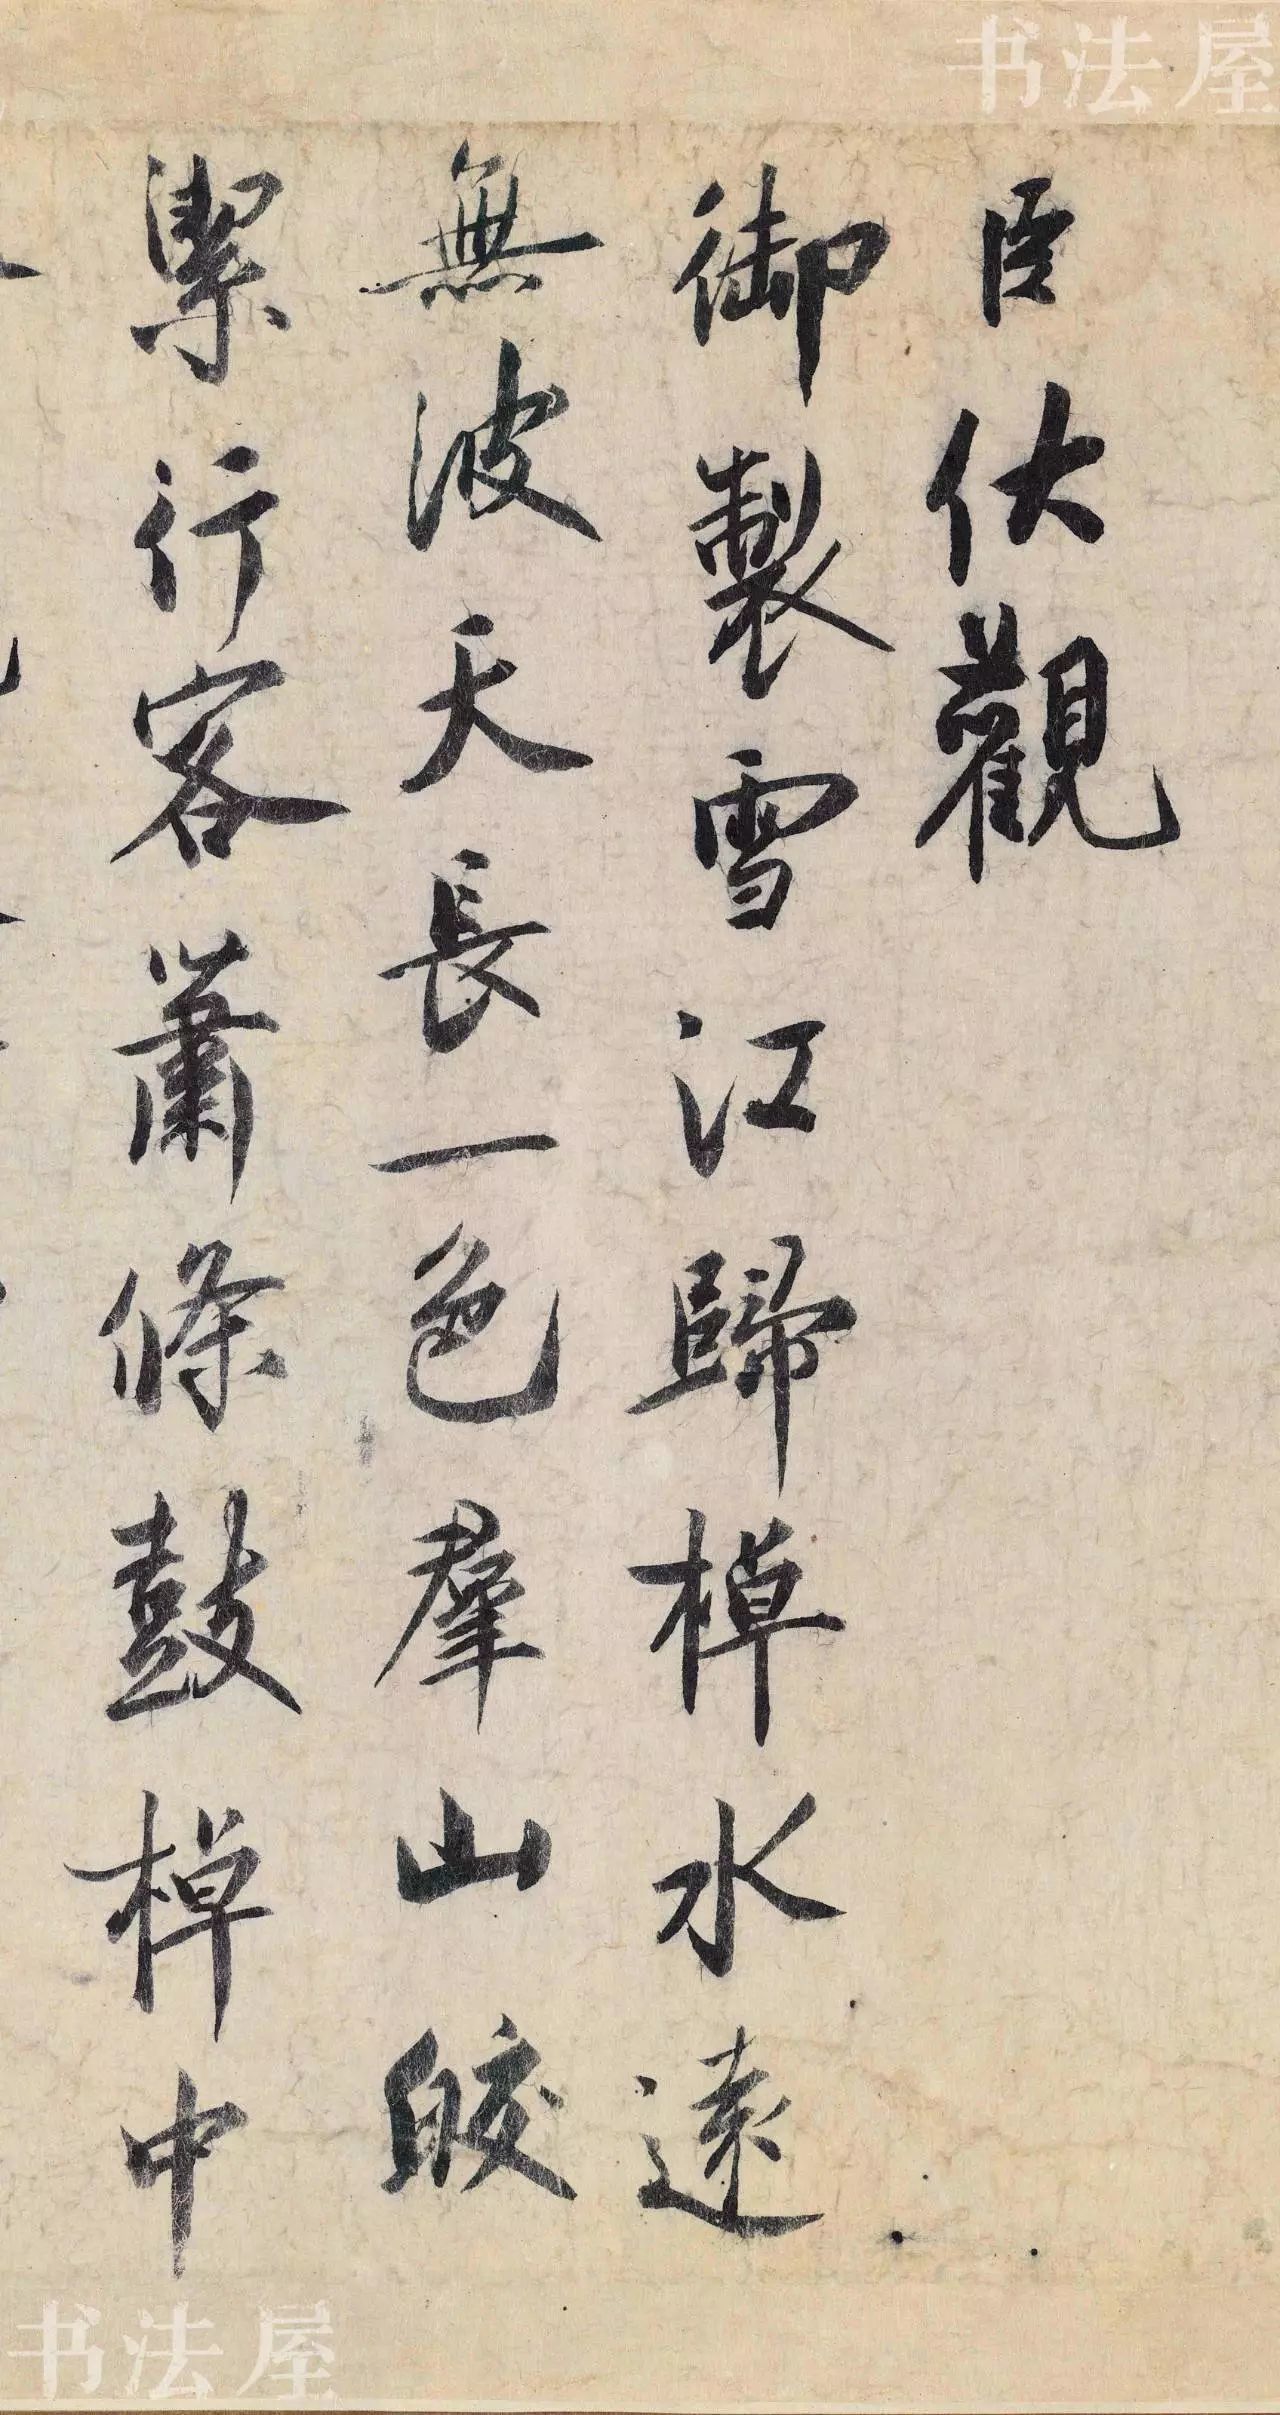 书法屋
臣伏觀
御製雪江歸棹水遠
無波天長一色羣山皎
潔行客蕭條鼓棹中
书法屋